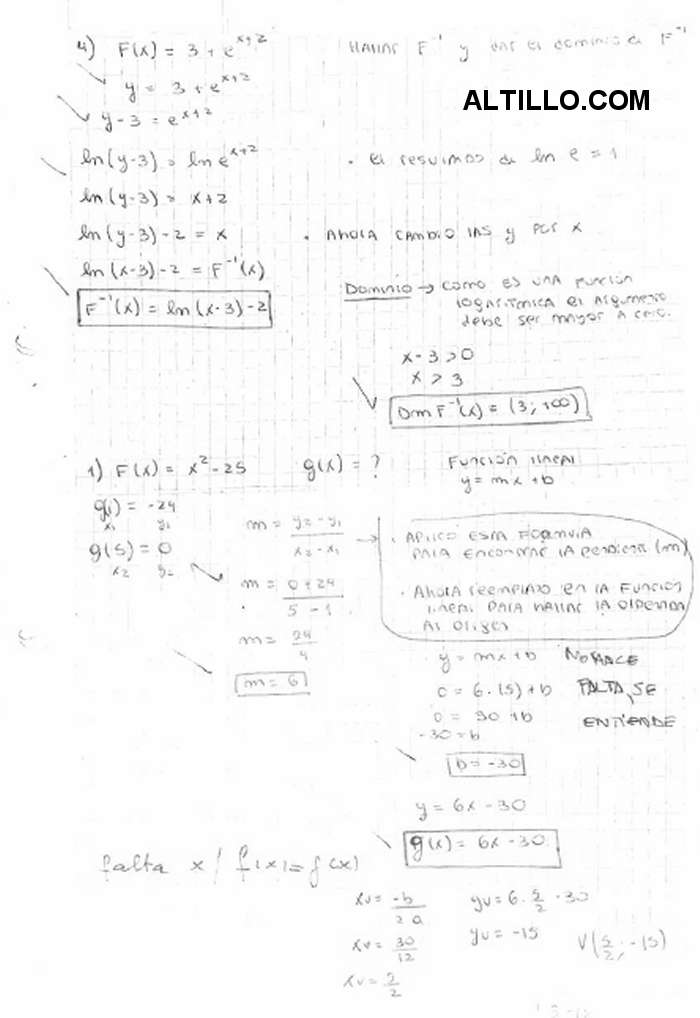 4) F(x) = 3 + e^(x+2) HALLAR F^-1 y DAR el DOMINIO de F^-1
y = 3 + e^(x+2)
ALTILLO.COM
y - 3 = e^(x+2)
ln(y-3) = ln e^(x+2) . ln e = 1
ln(y-3) = x+2
ln(y-3) - 2 = x . AHORA CAMBIO LAS y POR x
ln(x-3) - 2 = F^-1(x)
F^-1(x) = ln(x-3) - 2
DOMINIO → COMO ES UNA FUNCIÓN
LOGARITMICA el ARGUMENTO
debe ser mayor a cero.
x - 3 > 0
x > 3
Dom F^-1(x) = (3; +∞)
1) F(x) = x² - 25 g(x) = ? FUNCIÓN lineal
y = mx + b
g(1) = -24
x₁ y₁
g(5) = 0
x₂ y₂
m = (y₂ - y₁)/(x₂ - x₁) →
m = (0 + 24)/(5 - 1)
m = 24/4
m = 6
. APLICO ESTA FORMULA
PARA ENCONTRAR LA PENDIENTE (m)
. AHORA REEMPLAZO EN LA FUNCIÓN
lineal PARA HALLAR LA ORDENADA
AL ORIGEN
y = mx + b NO HACE
0 = 6.(5) + b FALTA, SE
0 = 30 + b ENTIENDE
-30 = b
b = -30
y = 6x - 30
g(x) = 6x - 30
falta x / f(x) = g(x)
xv = -b/2a yv = 6 . 5/2 - 30
xv = 30/12 yv = -15 V(5/2; -15)
xv = 5/2